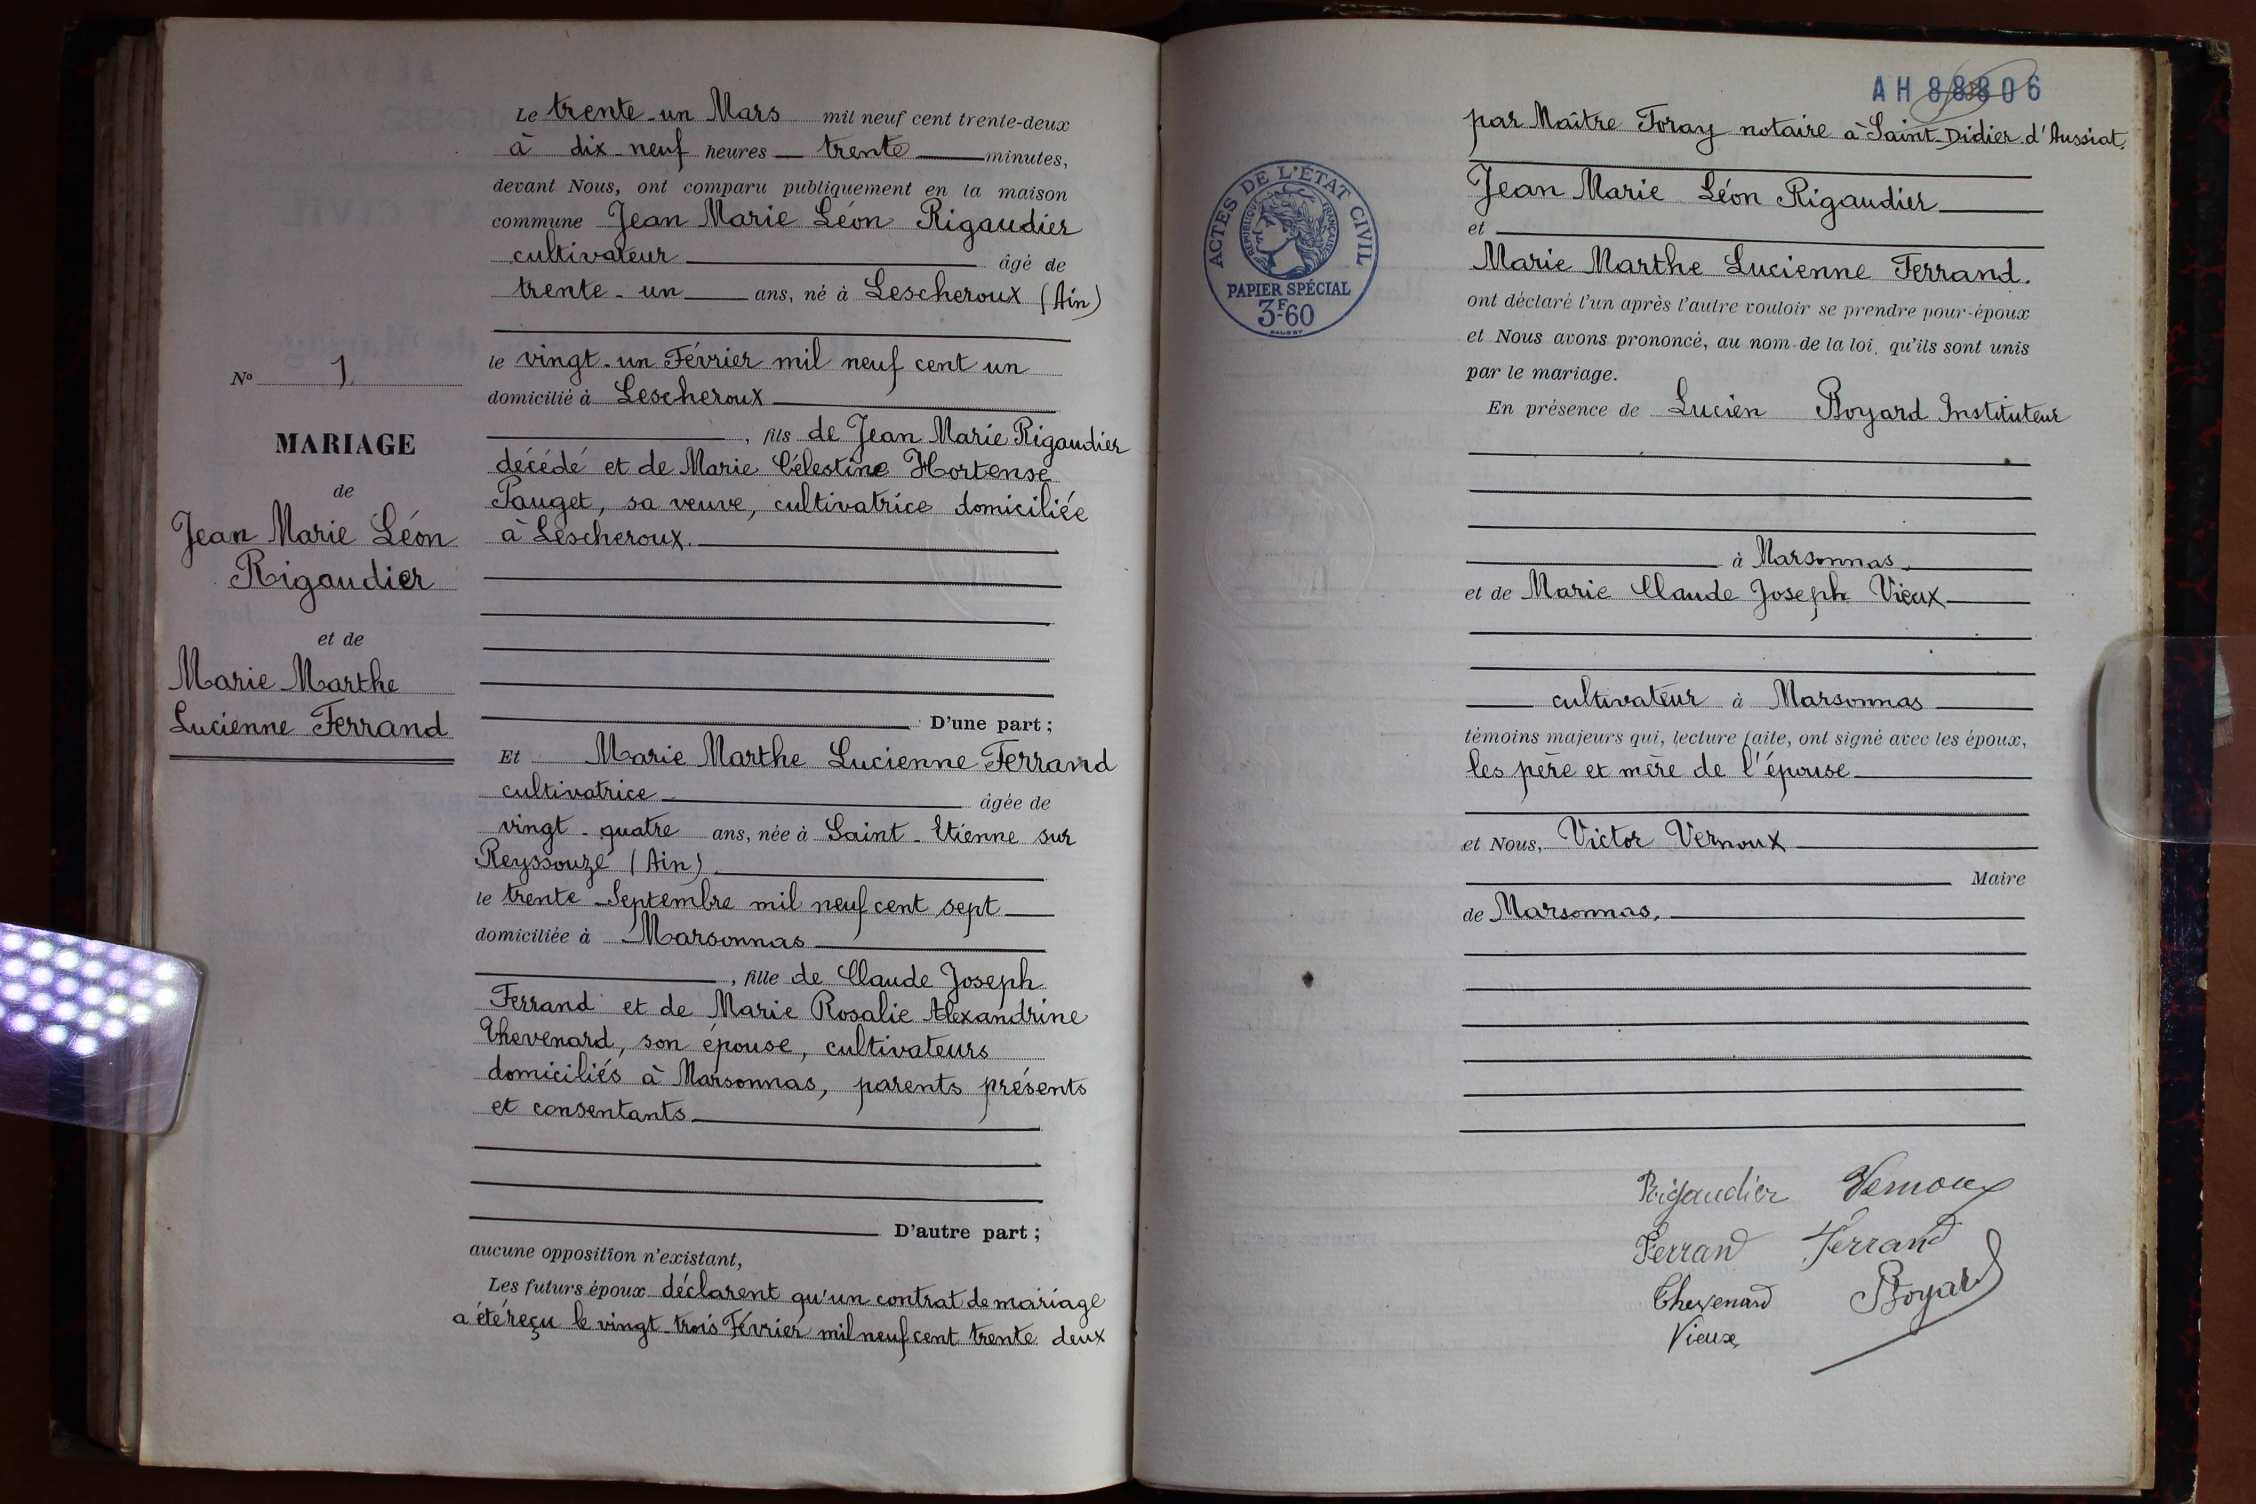 Le trente-un Mars mil neuf cent trente-deux
à dix-neuf heures trente minutes,
devant Nous, ont comparu publiquement en la maison
commune Jean Marie Léon Rigaudier
cultivateur âgé de
trente-un ans, né à Lescheroux (Ain)
le vingt-un Février mil neuf cent un
domicilié à Lescheroux
, fils de Jean Marie Rigaudier
décédé et de Marie Célestine Hortense
Pauget, sa veuve, cultivatrice domiciliée
à Lescheroux.
No 1
MARIAGE
de
Jean Marie Léon
Rigaudier
et de
Marie Marthe
Lucienne Ferrand
D'une part ;
Et Marie Marthe Lucienne Ferrand
cultivatrice âgée de
vingt-quatre ans, née à Saint-Etienne sur
Reyssouze (Ain)
le trente Septembre mil neuf cent sept
domiciliée à Marsonnas
, fille de Claude Joseph
Ferrand et de Marie Rosalie Alexandrine
Thevenard, son épouse, cultivateurs
domiciliés à Marsonnas, parents présents
et consentants
D'autre part ;
aucune opposition n'existant,
Les futurs époux déclarent qu'un contrat de mariage
a été reçu le vingt-trois Février mil neuf cent trente deux
AH 88806
par Maître Foray notaire à Saint-Didier d'Aussiat.
Jean Marie Léon Rigaudier
et
Marie Marthe Lucienne Ferrand.
ont déclaré l'un après l'autre vouloir se prendre pour époux
et Nous avons prononcé, au nom de la loi, qu'ils sont unis
par le mariage.
En présence de Lucien Boyard Instituteur
à Marsonnas.
et de Marie Claude Joseph Vieux
cultivateur à Marsonnas
témoins majeurs qui, lecture faite, ont signé avec les époux,
les père et mère de l'épouse
et Nous, Victor Vernoux
Maire
de Marsonnas.
ACTES DE L'ÉTAT CIVIL
RÉPUBLIQUE FRANÇAISE
PAPIER SPÉCIAL
3F60
Rigaudier Vernoux
Ferrand Ferrand
Thevenard Boyard
Vieux